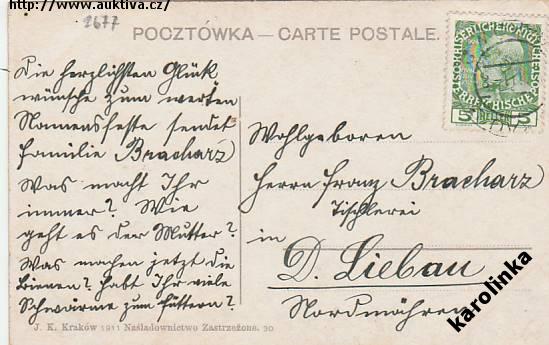 https://www.auktiva.cz/
2677
POCZTÓWKA — CARTE POSTALE.
Die herzlichsten Glück
wünsche zum werten
Namensfeste sendet
Familie Bracharz
Was macht Ihr
immer? Wie
geht es der Mutter?
Was machen jetzt die
Bienen? Habt Ihr viele
Schwärme zum füttern?
Wohlgeboren
Herrn Franz Bracharz
Tischlerei
in
D. Liebau
Nordmähren
5 HELLER 5
J. K. Kraków 1911 Naśladownictwo Zastrzeżone. 30
karolinka